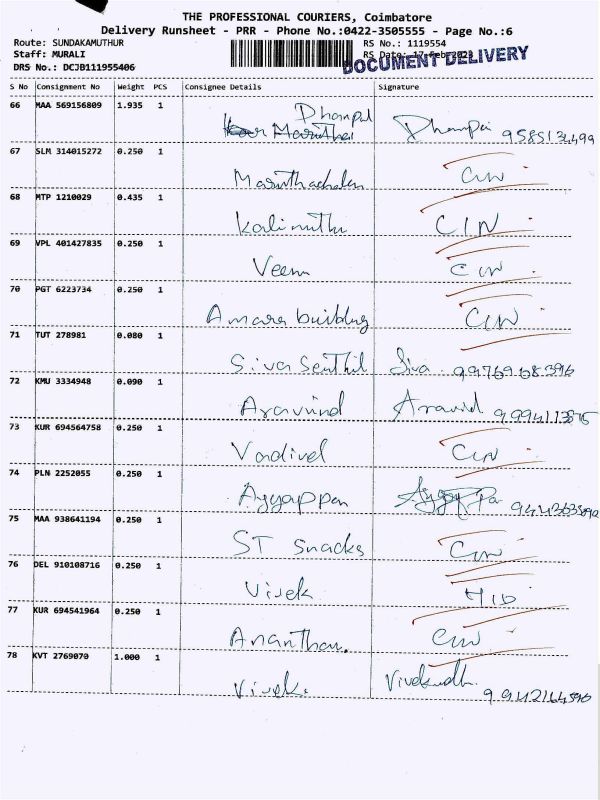 THE PROFESSIONAL COURIERS, Coimbatore
Delivery Runsheet - PRR - Phone No.:0422-3505555 - Page No.:6
Route: SUNDAKAMUTHUR RS No.: 1119554
Staff: MURALI RS Date: 17-Feb-2023
DOCUMENT DELIVERY
DRS No.: DCJB111955406
S No Consignment No Weight PCS Consignee Details Signature
66 MAA 569156809 1.935 1 Dhanpal
Maruthai Dhanpal
67 SLM 314015272 0.250 1
Maruthachalam CIN
68 MTP 1210029 0.435 1
Kalimuthu CIN
69 VPL 401427835 0.250 1
Veena CIN
70 PGT 6223734 0.250 1
Amara building CIN
71 TUT 278981 0.080 1
Siva Senthil Siva
72 KMU 3334948 0.090 1
Aravind Aravind
73 KUR 694564758 0.250 1
Vadivel CIN
74 PLN 2252055 0.250 1
Ayyappan
75 MAA 938641194 0.250 1
ST Snacks CIN
76 DEL 910108716 0.250 1
Vivek HID
77 KUR 694541964 0.250 1
Ananthan. CIN
78 KVT 2769070 1.000 1
Vivek. 9942164596